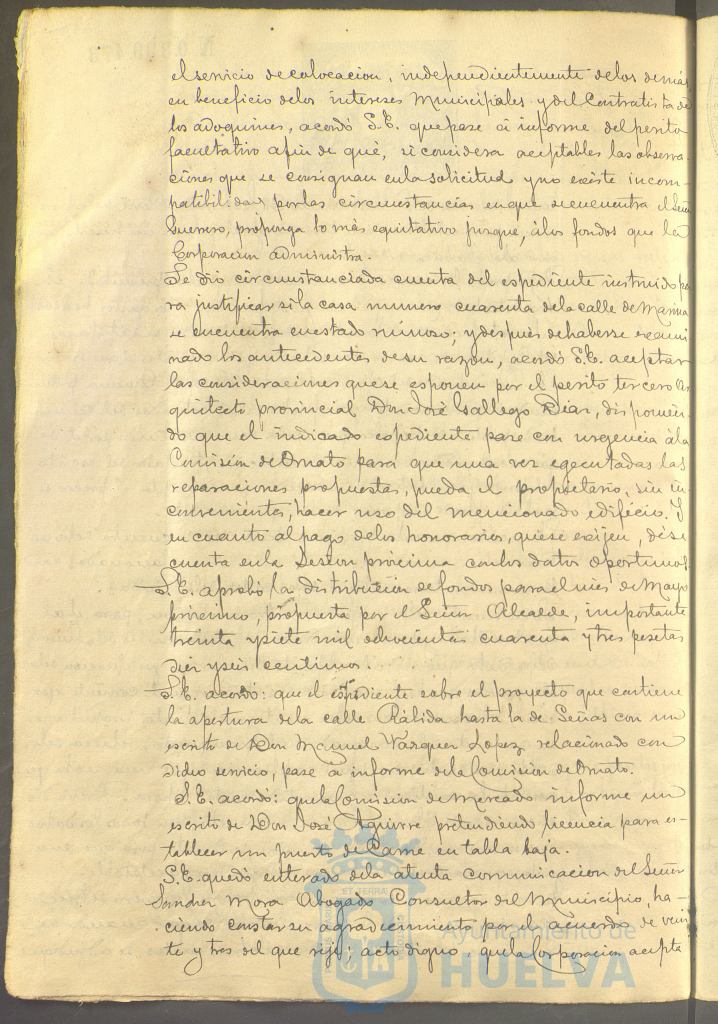 el servicio de colocacion, independientemente de los demás,
en beneficio de los intereses Municipales y del Contratista de
los adoquines, acordó S.E. que pase á informe del perito
facultativo afin de qué, si considera aceptables las observa-
ciones que se consignan en la solicitud y no existe incom-
patibilidad por las circunstancias en que se encuentra el Señor
Guerrero, proponga lo más equitativo juzgue, á los fondos que la
Corporacion administra.
Se dió circunstanciada cuenta del espediente instruido pa
ra justificar si la casa numero cuarenta de la calle de Marina
se encuentra en estado ruinoso; y despues de haberse exami
nado los antecedentes de su razon, acordó S.E. aceptar
las consideraciones que se esponen por el perito tercero Ar
quitecto provincial Don José Gallego Diaz, disponien
do que el indicado espediente pase con urgencia á la
Comision de Ornato para que una vez egecutadas las
reparaciones propuestas, pueda el propietario, sin in
convenientes, hacer uso del mencionado edificio. Y
en cuanto al pago de los honorarios, que se exijen, dése
cuenta en la Sesion próxima con los datos oportunos.
S.E. aprobó la distribucion de fondos para el mes de Mayo
próximo, propuesta por el Señor Alcalde, importante
treinta y siete mil ochocientas cuarenta y tres pesetas
diez y seis centimos.
S.E. acordó: que el espediente sobre el proyecto que contiene
la apertura de la calle Rábida hasta la de Señas con un
escrito de Don Manuel Vazquez Lopez relacionado con
dicho servicio, pase á informe de la Comision de Ornato.
S.E. acordó: que la Comision de Mercado informe un
escrito de Don José Aguirre pretendiendo licencia para es-
tablecer un puesto de Carne en tabla baja.
S.E. quedó enterado de la atenta comunicacion del Señor
Sanchez Mora Abogado Consultor del Municipio, ha-
ciendo constar su agradecimiento por el acuerdo de vein
te y tres del que rije; acto digno, que la Corporacion acepta
Ayuntamiento de
HUELVA